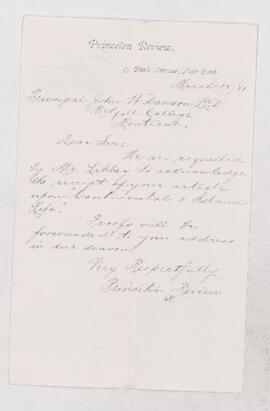 Princeton Review.
Park Avenue, New York
March 13/81
Principal John W Dawson LL.D.
McGill College,
Montreal.
Dear Sir:
We are requested
by Mr. Libbey to acknowledge
the receipt of your article
upon "Continental & Island
Life."
Proofs will be
forwarded to your address
in due season
Very Respectfully
Princeton Review